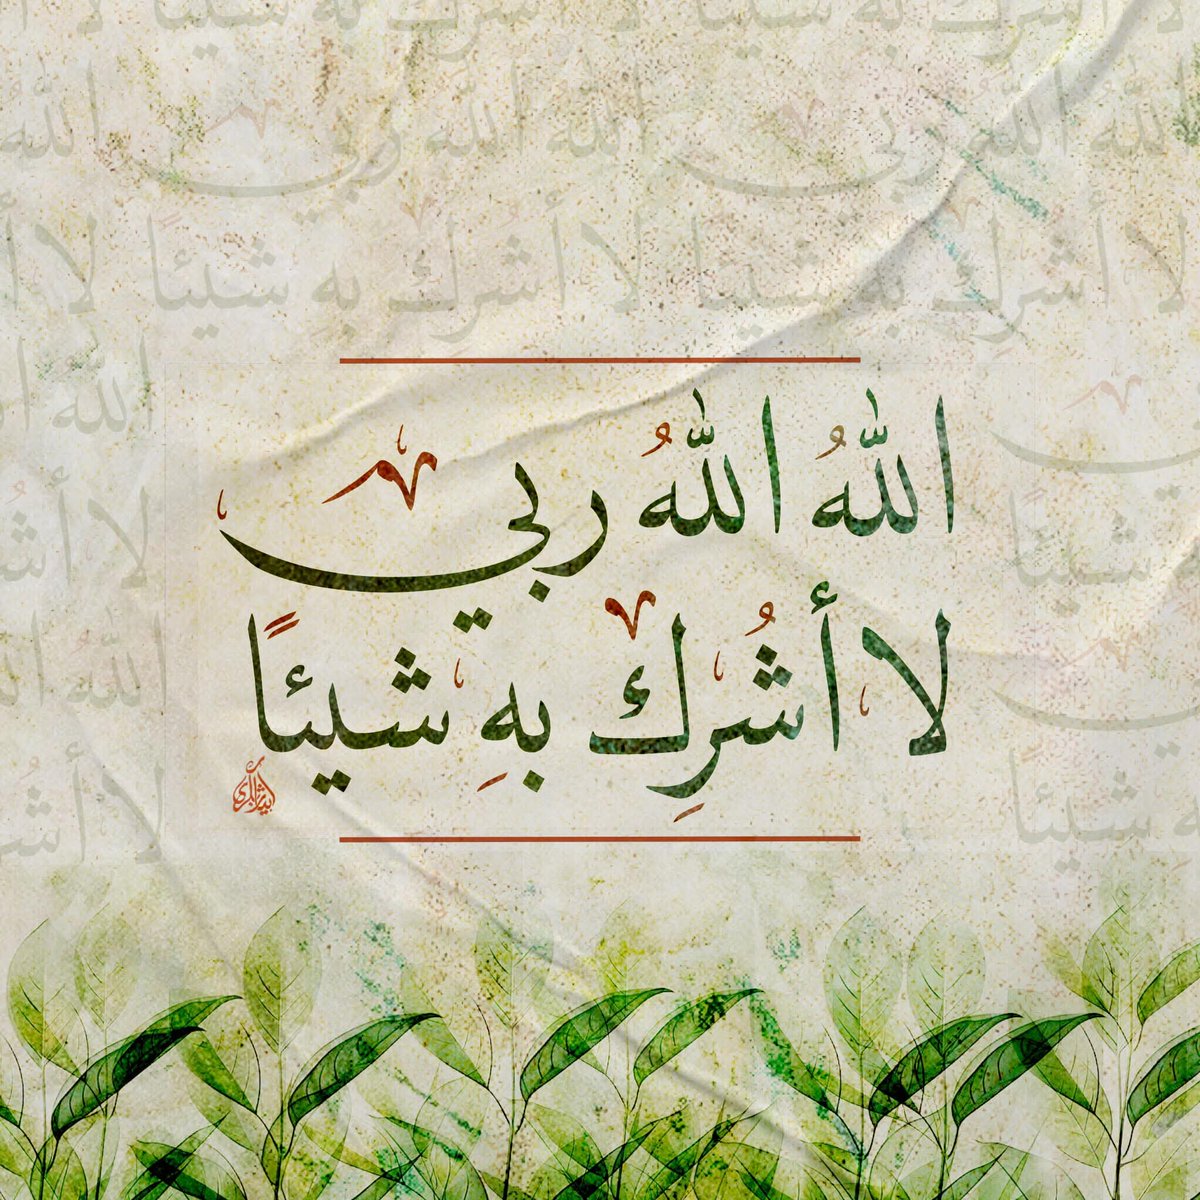 اللهُ اللهُ ربي
لا أشُرِك بهِ شيئاً